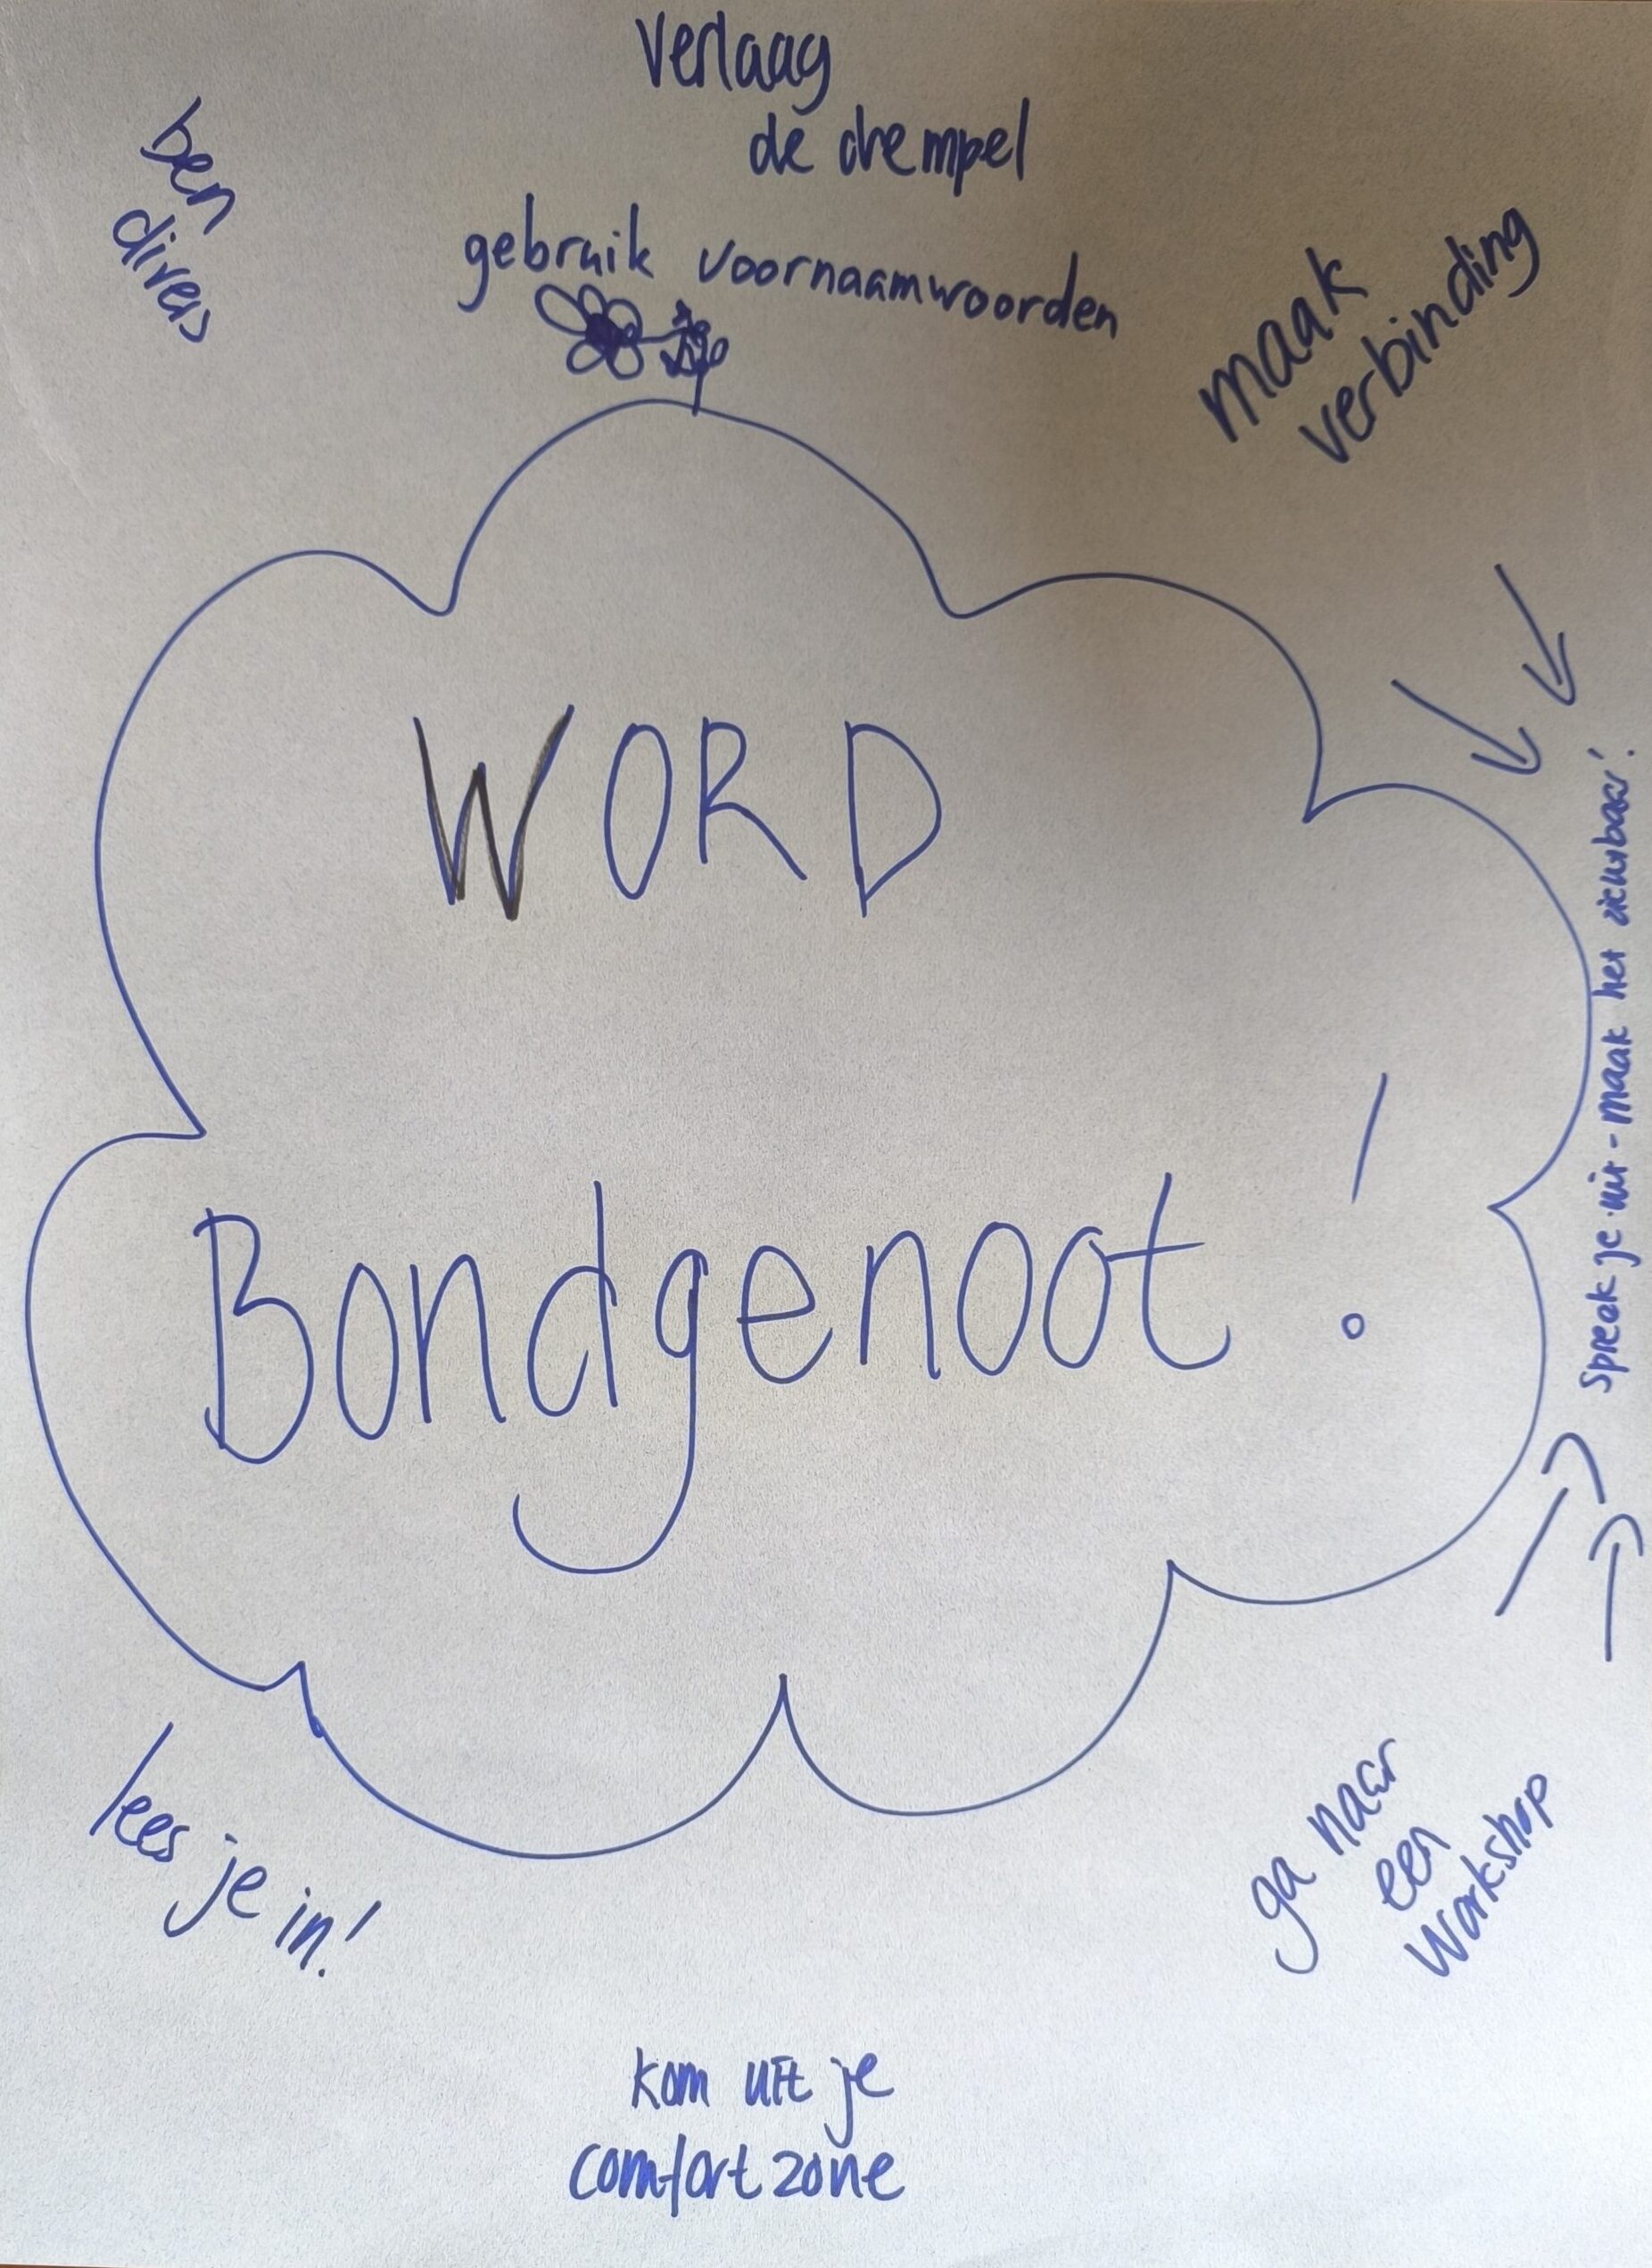 Verlaag
de drempel
ben
divers
gebruik voornaamwoorden
maak
verbinding
WORD
Bondgenoot!
Spreek je uit - maak het zichtbaar!
lees je in!
ga naar
een
workshop
kom uit je
comfort zone